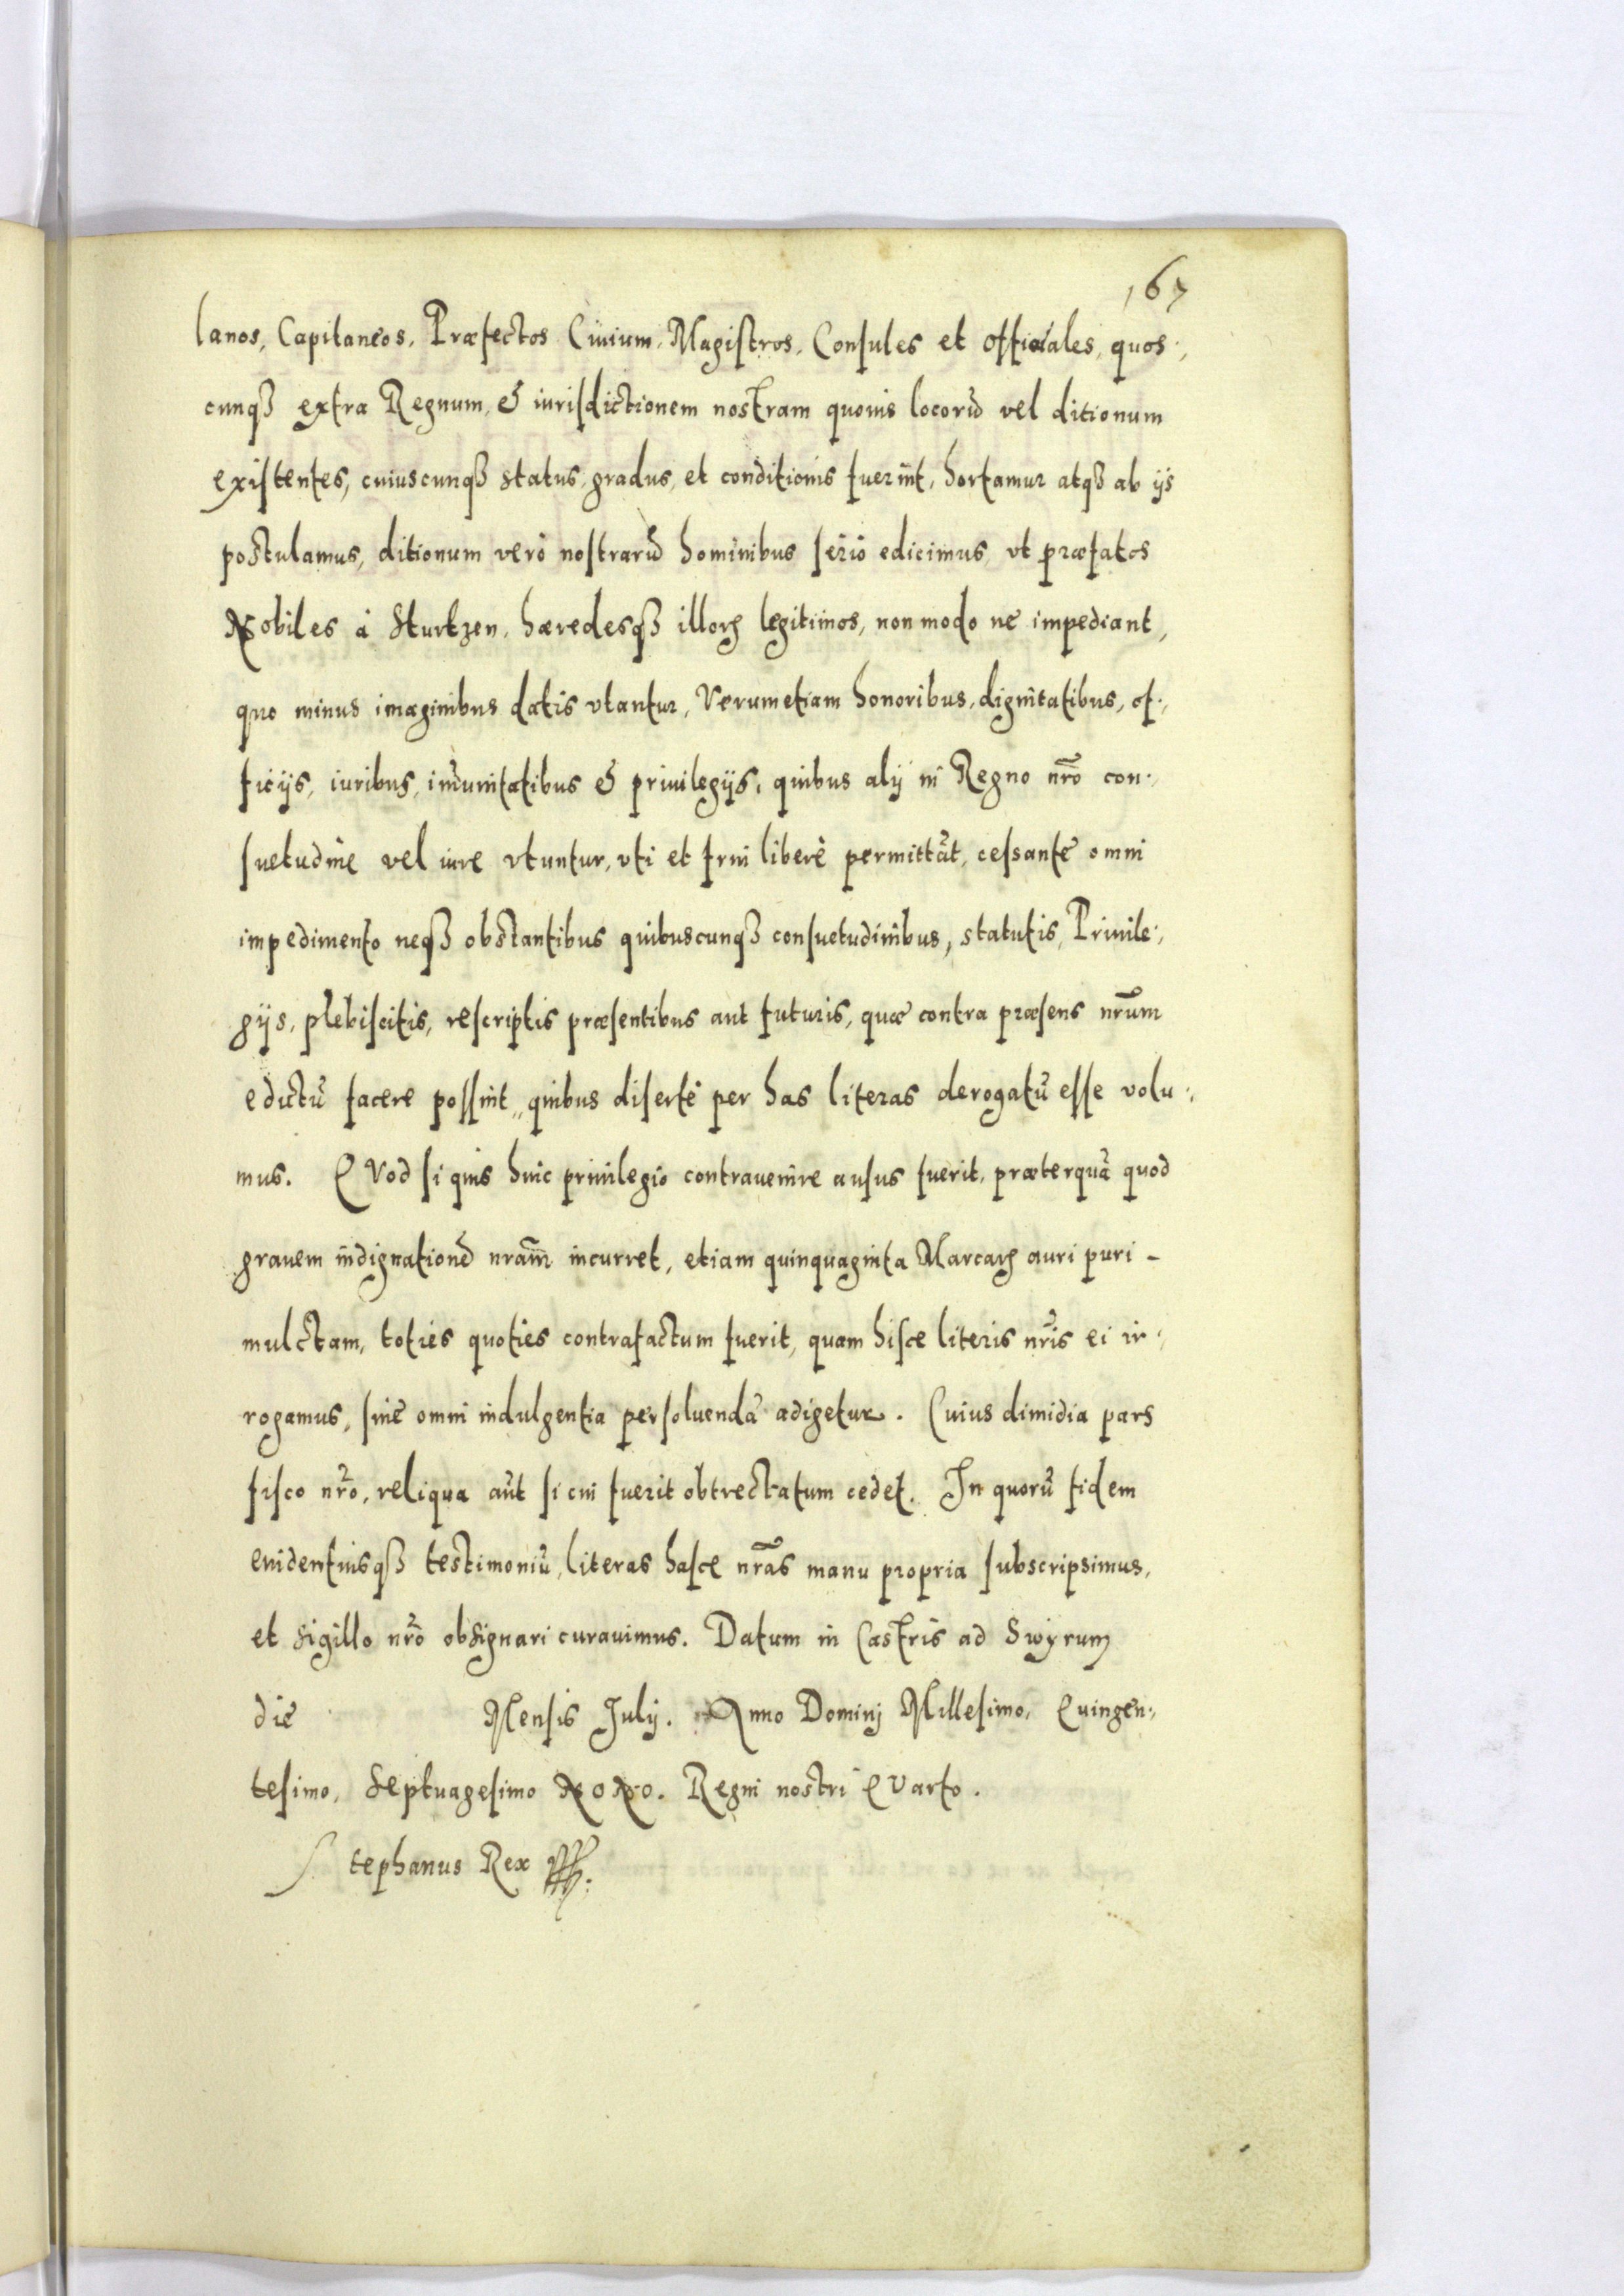 167
lanos, Capitaneos, Præfectos Ciuium, Magistros, Consules et officiales, quos:,
cunqꝫ extra Regnum, & iurisdictionem nostram quouis locorũ vel ditionum
existentes, cuiuscunqꝫ status, gradus, et conditionis fuerint, hortamur atqꝫ ab ijs
postulamus, ditionum verò nostrarũ hominibus seriò edicimus, vt præfatos
Nobiles à Sturtzen, hæredesqꝫ illorꝫ legitimos, non modo ne impediant,
quo minus imaginibus datis vtantur, Verumetiam honoribus, dignitatibus, of:,
ficijs, iuribus, im̃unitatibus & priuilegijs, quibus alij in Regno nr̃o con:,
suetudine vel iure vtuntur, vti et frui liberè permittãt, cessante omni
impedimento neqꝫ obstantibus quibuscunqꝫ consuetudinibus, statutis, Priuile:,
gijs, plebiscitis, rescriptis præsentibus aut futuris, quæ contra præsens nr̃um
edictũ facere possint, quibus disertè per has literas derogatũ esse volu:,
mus. QVod si quis huic priuilegio contrauenire ausus fuerit, præterquã quod
grauem indignationẽ nram̃ incurret, etiam quinquaginta Marcarꝫ auri puri -
mulctam, toties quoties contrafactum fuerit, quam hisce literis nr̃is ei ir:,
rogamus, sine omni indulgentia persoluendã adigetur. Cuius dimidia pars
fisco nr̃o, reliqua aũt si cui fuerit obtrectatum cedet. In quorũ fidem
euidentiusqꝫ testimoniũ, literas hasce nr̃as manu propria subscripsimus,
et sigillo nr̃o obsignari curauimus. Datum in Castris ad Swyrum
die Mensis Julij. Anno Dominj Millesimo, Quingen:,
tesimo, Septuagesimo NoNo. Regni nostri QVarto.
Stephanus Rex